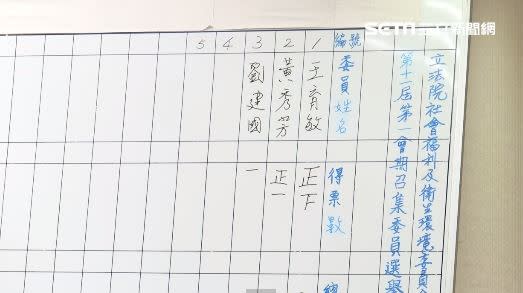 SETN三立新聞網
立法院社會福利及衛生環境委員會
第十一屆第一會期召集委員選舉
編號
委員姓名
得票數
總
1
王育敏
正下
2
黃秀芳
正一
3
劉建國
一
4
5